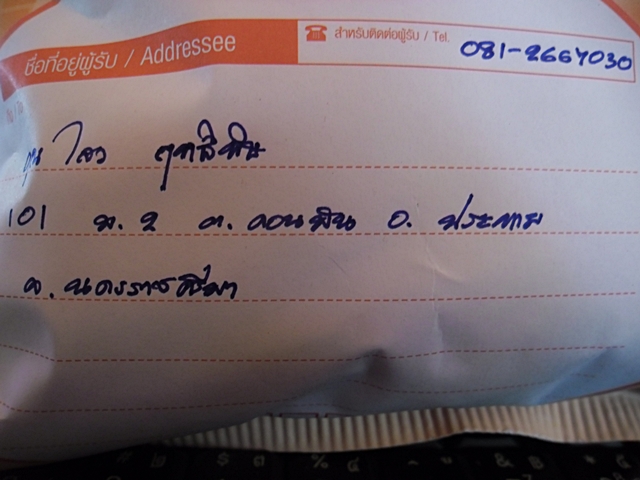 สำหรับติดต่อผู้รับ / Tel. 081-2667030
ชื่อที่อยู่ผู้รับ / Addressee
คุณ
101 ม. 2 ต. ดอนมัน อ. ประทาย
จ. นครราชสีมา